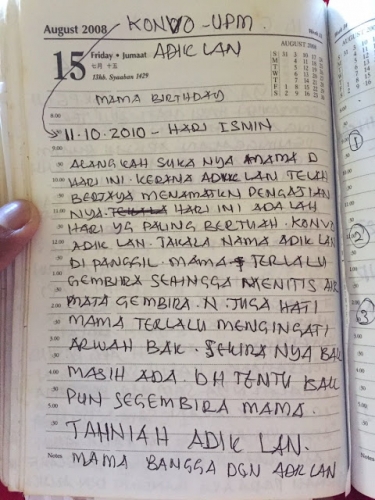 August 2008
KONVO - UPM.
ADIK LAN
15
Friday • Jumaat
七月 十五
13hb. Syaaban 1429
AUGUST 2008
MAMA BIRTHDAY
8.00
11.10.2010 - HARI ISNIN
9.00
.30 ALANGKAH SUKA NYA MAMA D
10.00 HARI INI. KERANA ADIK LAN TELAH
.30 BERJAYA MENAMATKN PENGAJIAN
11.00 NYA. HARI INI ADALAH
.30 HARI YG PALING BERTUAH. KONVO
12.00 ADIK LAN. TAKALA NAMA ADIK LAN
.30 DI PANGGIL. MAMA TERLALU
1.00 GEMBIRA SEHINGGA MENITIS AIR
.30 MATA GEMBIRA. N. JUGA HATI
2.00 MAMA TERLALU MENGINGATI
.30
3.00 ARWAH BAK. SEKIRA NYA BAK
.30
4.00 MASIH ADA. DH TENTU BAK
.30
5.00 PUN SEGEMBIRA MAMA.
.30 TAHNIAH ADIK LAN.
Notes MAMA BANGGA DGN ADIK LAN
1
2
3